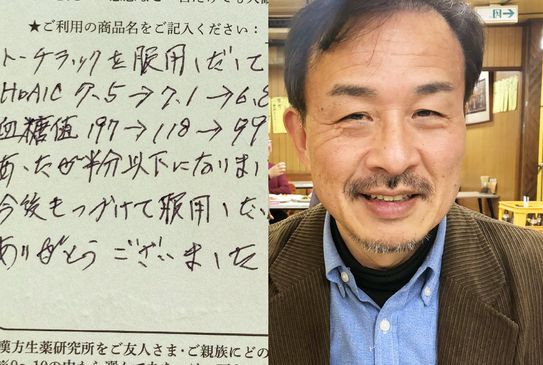 ★ご利用の商品名をご記入ください：
トーチラックを服用しだして
HbA1C 7.5→7.1→6.8
血糖値 197→118→99
あったが半分以下になりまし
今後もつづけて服用した
ありがとうございました
漢方生薬研究所をご友人さま・ご親族にどの